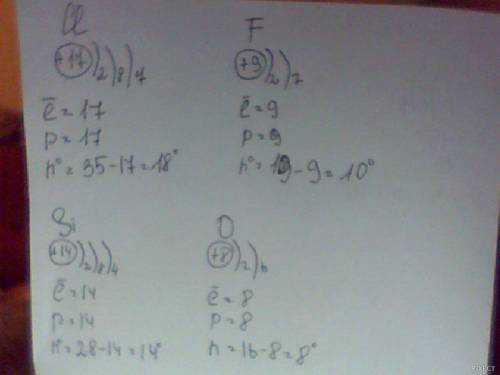 Cl
+17 )2 )8 )7
ē = 17
p = 17
n° = 35-17 = 18°
F
+9 )2 )7
ē = 9
p = 9
n° = 19-9 = 10°
Si
+14 )2 )8 )4
ē = 14
p = 14
n° = 28-14 = 14°
O
+8 )2 )6
ē = 8
p = 8
n = 16-8 = 8°